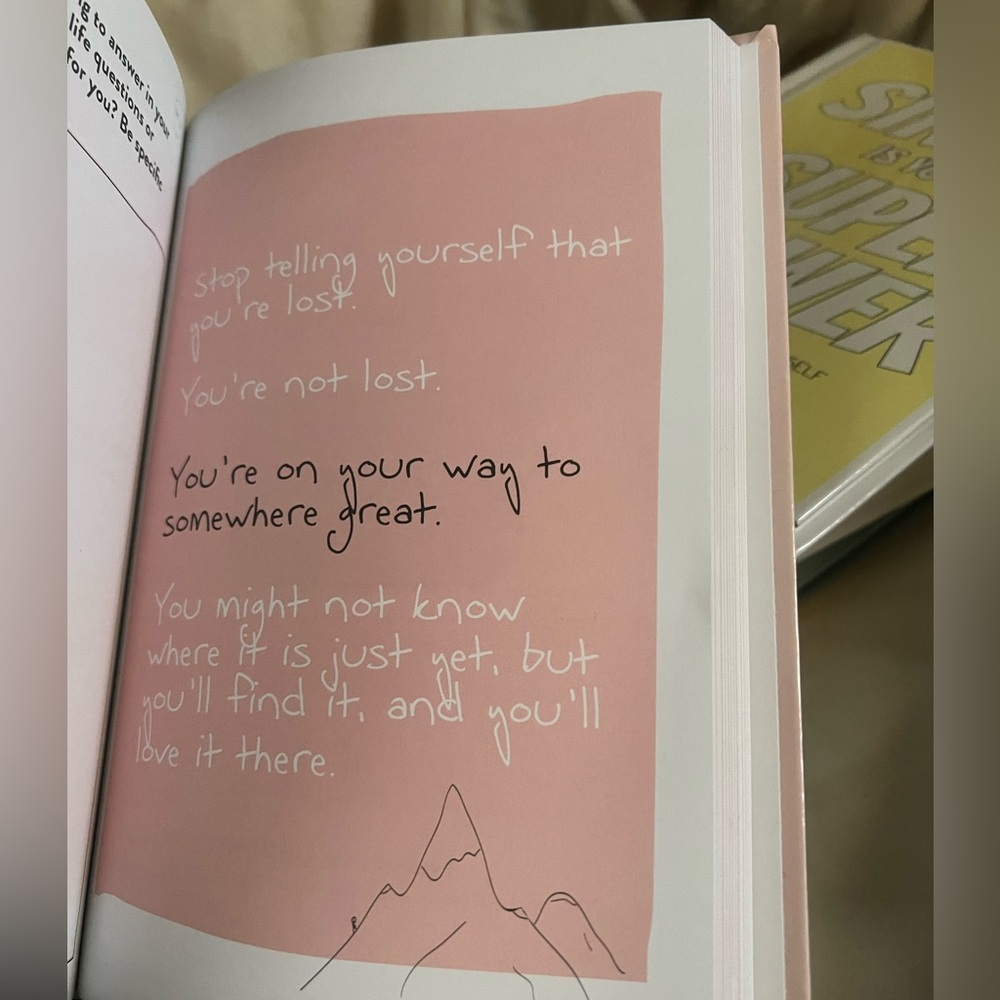 to answer in your
life questions or
for you? Be specific
stop telling yourself that
you're lost.
You're not lost.
You're on your way to
somewhere great.
You might not know
where it is just yet, but
you'll find it, and you'll
love it there.